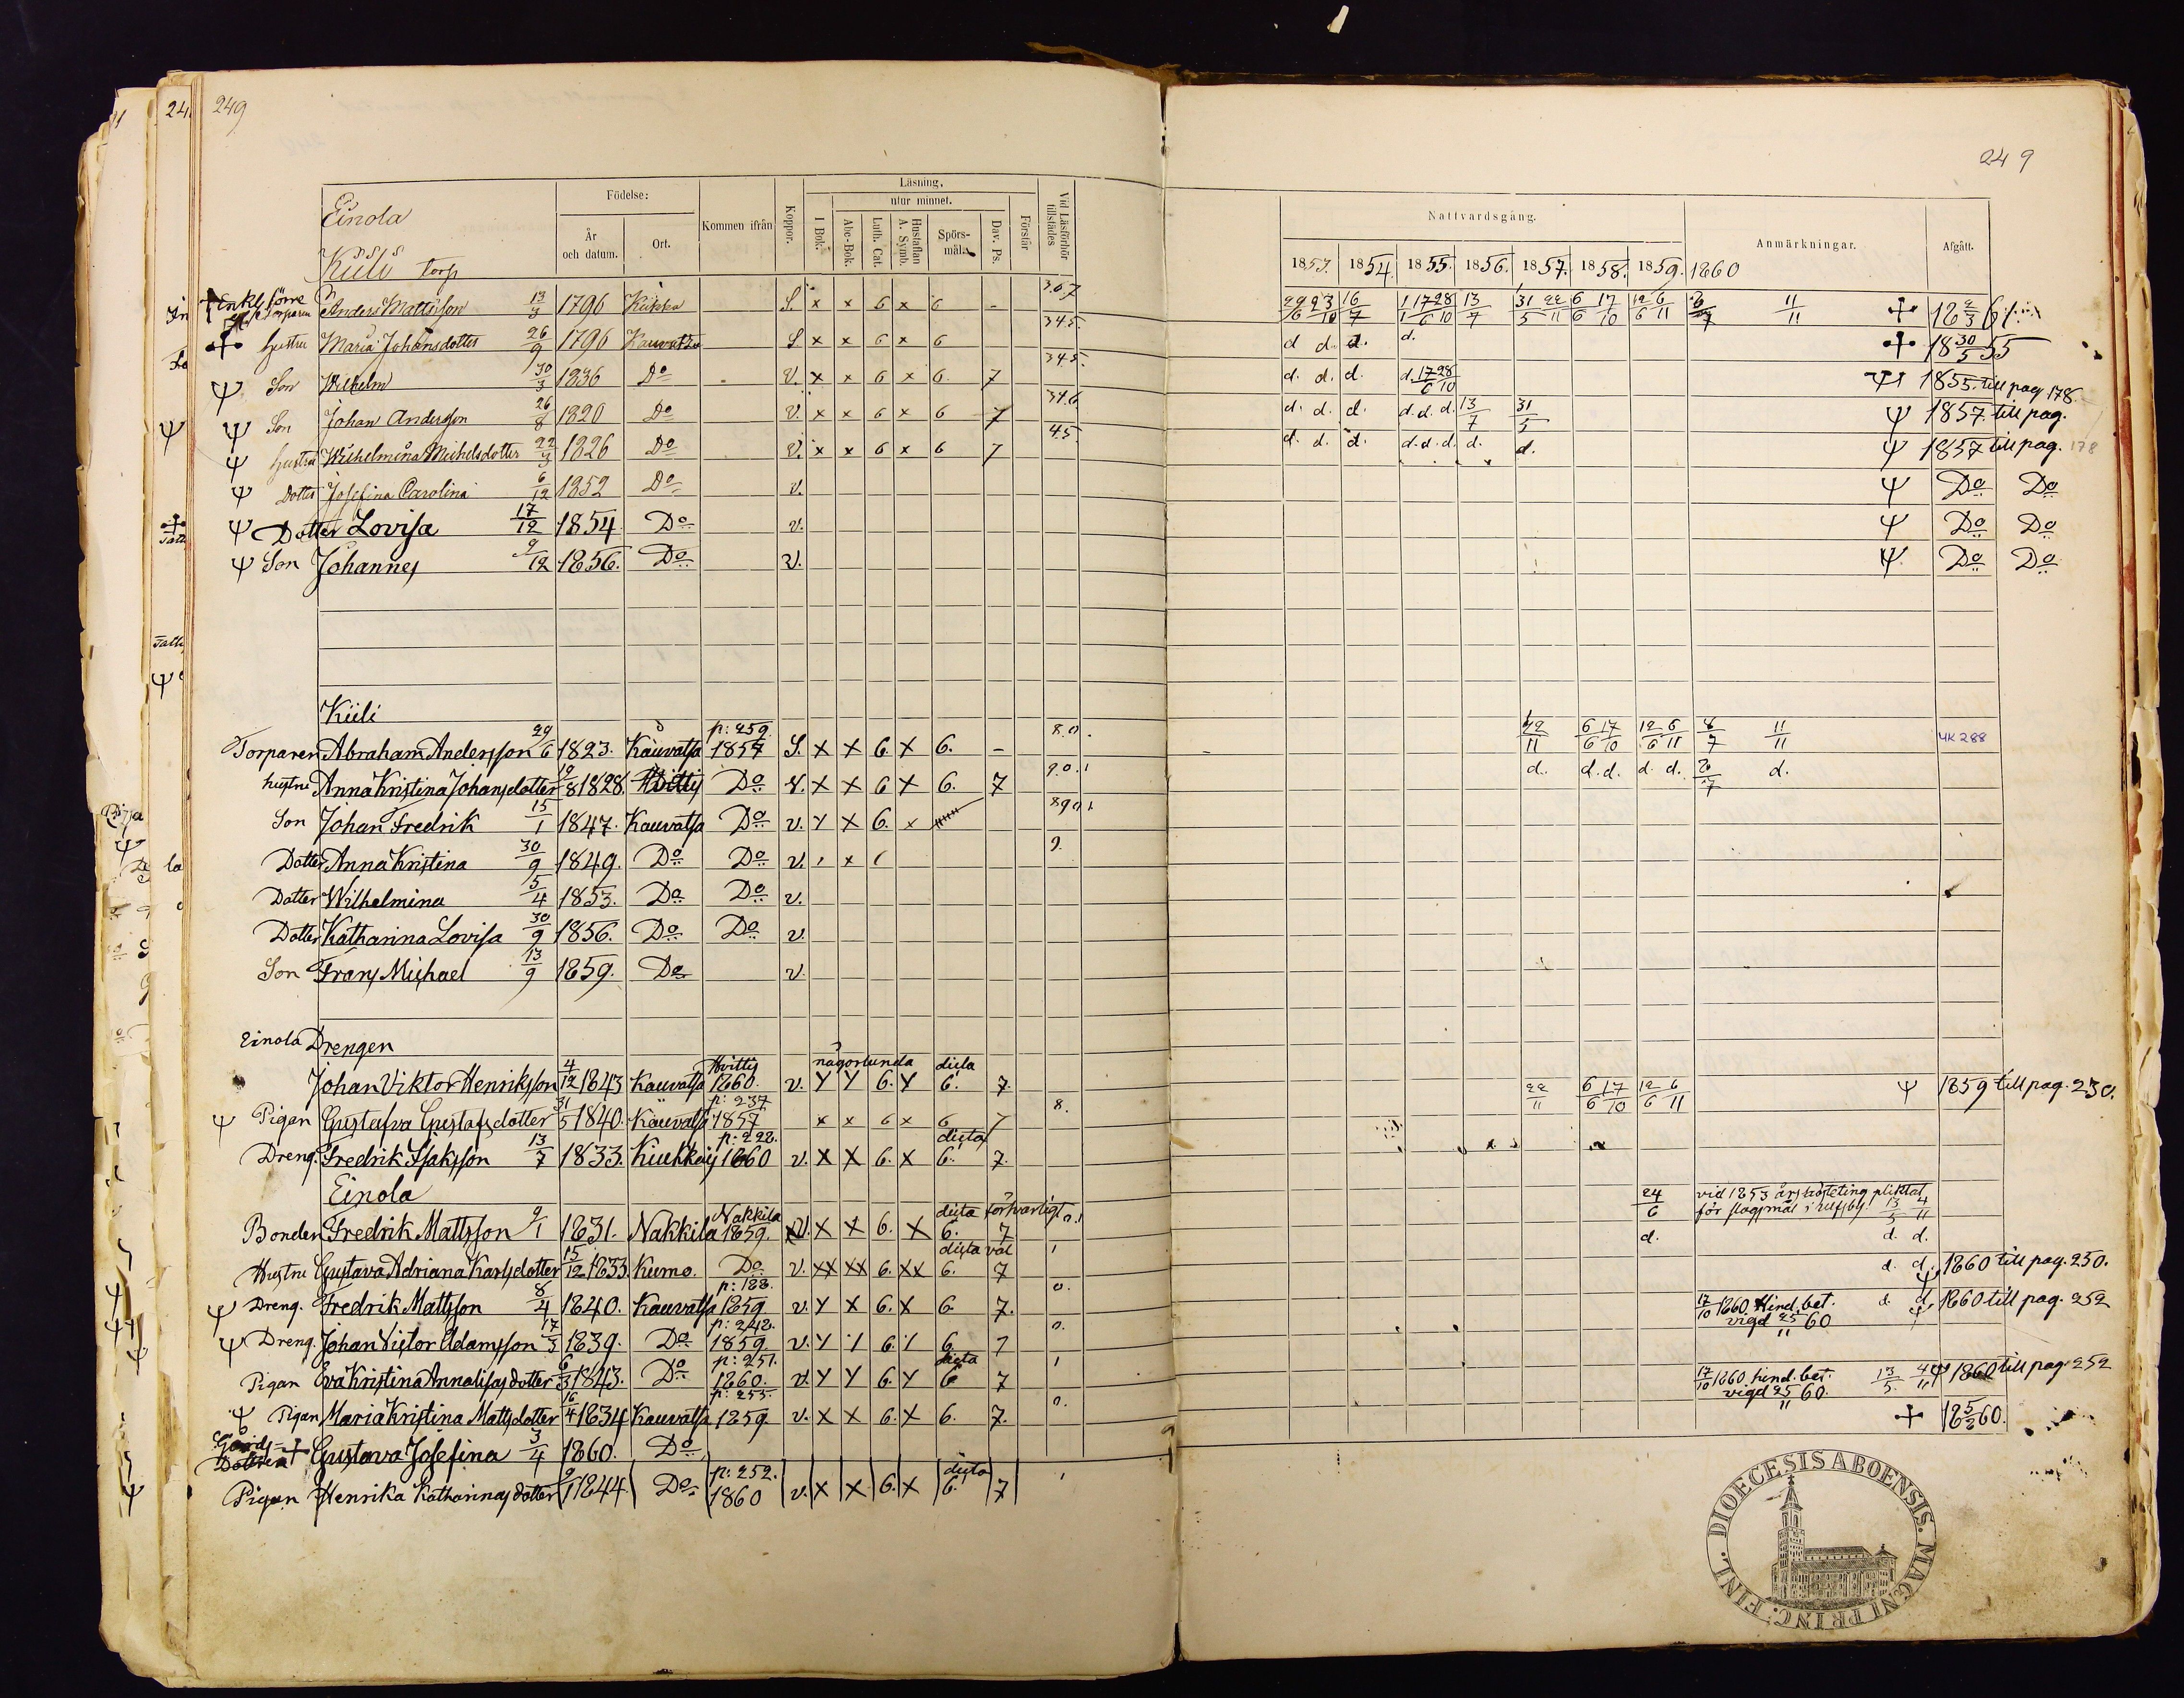 249
249
Einola
Kiili torp
Födelse:
År och datum.
Ort.
Kommen ifrån
Koppor.
Läsning.
I Bok.
utur minnet.
Abc-Bok.
Luth. Cat.
Hustaflan A. Symb.
Spörs-mål.
Dav. Ps.
Förstår
Vid Läsförhör tillstädes
Nattvardsgång.
1853. 1854. 1855. 1856. 1857. 1858. 1859. 1860
Anmärkningar.
Afgått.
Enkl. förre Torparen Anders Mattsson 13/3 1796 S. x x 6 x 6 - 3.6.7
hustru Maria Johansdotter 26/9 1796 Kauvatsa S x x 6 x 6 345. d d. d. d. 18 30/5 55
Son Wilhelm 30/3 1836 Do V. x x 6 x 6. 7 345. d. d. d. d. 17/6 28/10 1855. till pag 178.
Son Johan Andersson 26/8 1820 Do V. x x 6 x 6 7 346. d. d. d. d. d. d. 13/7 31/5 1857. till pag.
hustru Wilhelmina Michelsdotter 22/3 1826 Do V. x x 6 x 6 7 45 d. d. d. d. d. d. d. d. 1857 till pag. 178
Dotter Josefina Carolina 6/12 1852 Do v. Do Do
Dotter Lovisa 17/12 1854 Do v. Do Do
Son Johannes 9/12 1856. Do v. Do Do
Kiili
Torparen Abraham Andersson 29/6 1823. Kauvatsa p: 259. 1857 S. x x 6. x 6. - 8.0. 22/11 6/6 17/10 12/6 6/11 8/7 11/11 UK 288
hustru Anna Kristina Johansdotter 1828. Do x x 6 x 6. 7 9.0.1 d. d. d. d. d. d.
Son Johan Fredrik 15/1 1847. Kauvatsa Do v. x x 6. x
Dotter Anna Kristina 30/9 1849. Do Do v. 9.
Dotter Wilhelmina 5/4 1853. Do Do v.
Dotter Katharina Lovisa 30/9 1856. Do Do v.
Son Frans Michael 13/9 1859. Do v.
Einola Drengen
Johan Viktor Henriksson 4/12 1843 Kauvatsa Hvittis 1860. v. någorlunda 6. dieta 6. 7.
Pigan Gustafva Gustafsdotter 31/5 1840. Kauvatsa p: 237 1857 x x 6 x 6 7 8. 22/11 6/6 17/10 12/6 6/11 1859 till pag. 230.
Dreng. Fredrik Isaksson 13/7 1833. Kiukkais p: 222. 1860 v. x x 6. x dieta 6. 7.
Einola
Bonden Fredrik Mattsson 9/1 1831. Nakkila Nakkila 1859. v. x x 6. x dieta försvarligt 6. 7 24/6 vid 1853 års hösteting pliktat
13/5 4/11
Hustru Gustava Adriana Karlsdotter 15/12 1833 Kumo. Do v. xx xx 6. xx dieta väl 6. 7 1 d. d. d.
Dreng. Fredrik Mattsson 8/4 1840. Kauvatsa p: 188. 1859 v. x x 6. x 6. 7. 0. d. d. 1860 till pag. 250.
Dreng. Johan Victor Adamsson 17/3 1839. Do p: 242. 1859 v. 6. 6. 7 0. 17/10 1860. Hind. bet. vigd 25/11 60 d. d. 1860 till pag. 252
Pigan Eva Kristina Annalisas dotter 6/3 1843. Do p: 251. 1860. v. 6. dieta 6 7 1
Pigan Maria Kristina Mattsdotter 16/4 1834 Kauvatsa p: 255. 1859 v. x x 6. x 6. 7. 0. 17/10 1860. hind. bet. vigd 25/11 60. 13/5. 4/11 1860 till pag. 252
Dotter Gustava Josefina 3/4 1860. Do 18 5/2 60.
Pigan Henrika Katharinas dotter 1844. Do p: 252. 1860 v. x x 6. x dieta 6. 7
DIOECESIS ABOENSIS. MAGNI PRINC: FINL.